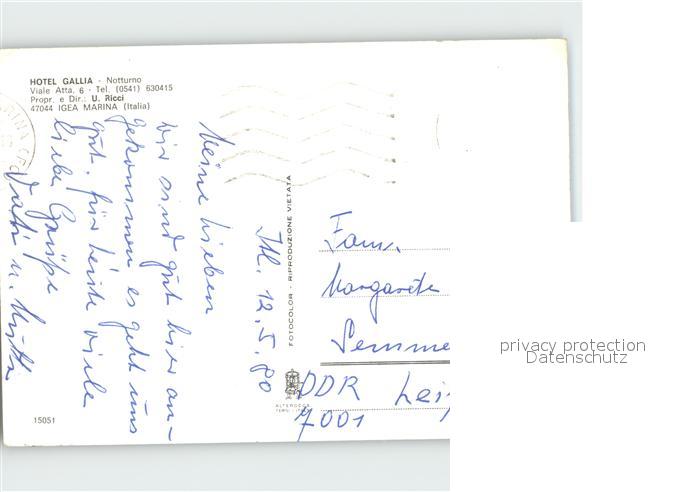 HOTEL GALLIA - Notturno
Viale Atta, 6 - Tel. (0541) 630415
Propr. e Dir.: U. Ricci
47044 IGEA MARINA (Italia)
Itl. 12.5.80
Meine Lieben
wir sind gut hier an-
gekommen es geht uns
gut. für heute viele
liebe Grüße
Vati u. Mutti
FOTOCOLOR - RIPRODUZIONE VIETATA
Fam.
Margarete
DDR Leip
7001
15051
privacy protection
Datenschutz